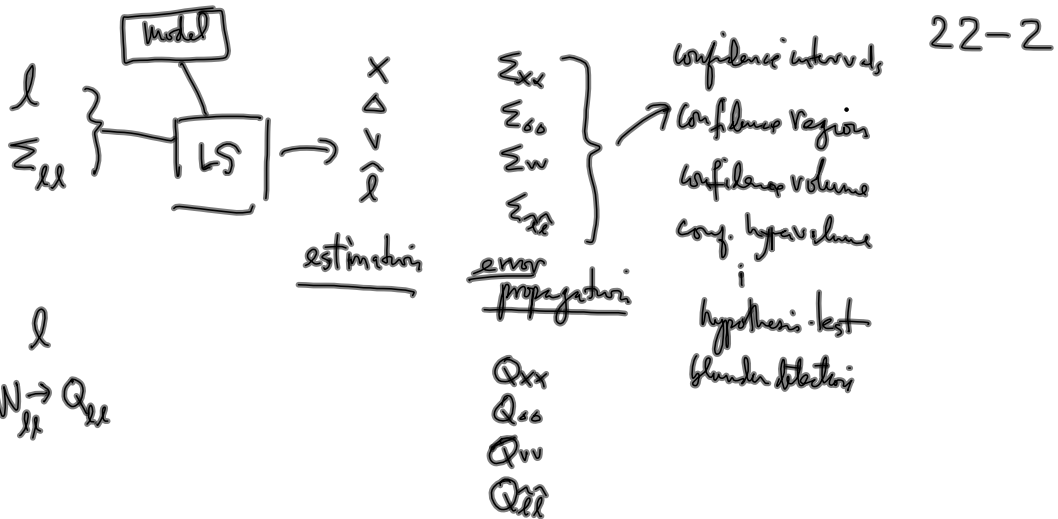 22-2
model
l
Σll
LS
x
Δ
v
l̂
estimation
Σxx
ΣΔΔ
Σvv
Σl̂l̂
error
propagation
confidence intervals
confidence region
confidence volume
conf. hypervolume
hypothesis test
blunder detection
l
Wll → Qll
Qxx
QΔΔ
Qvv
Ql̂l̂